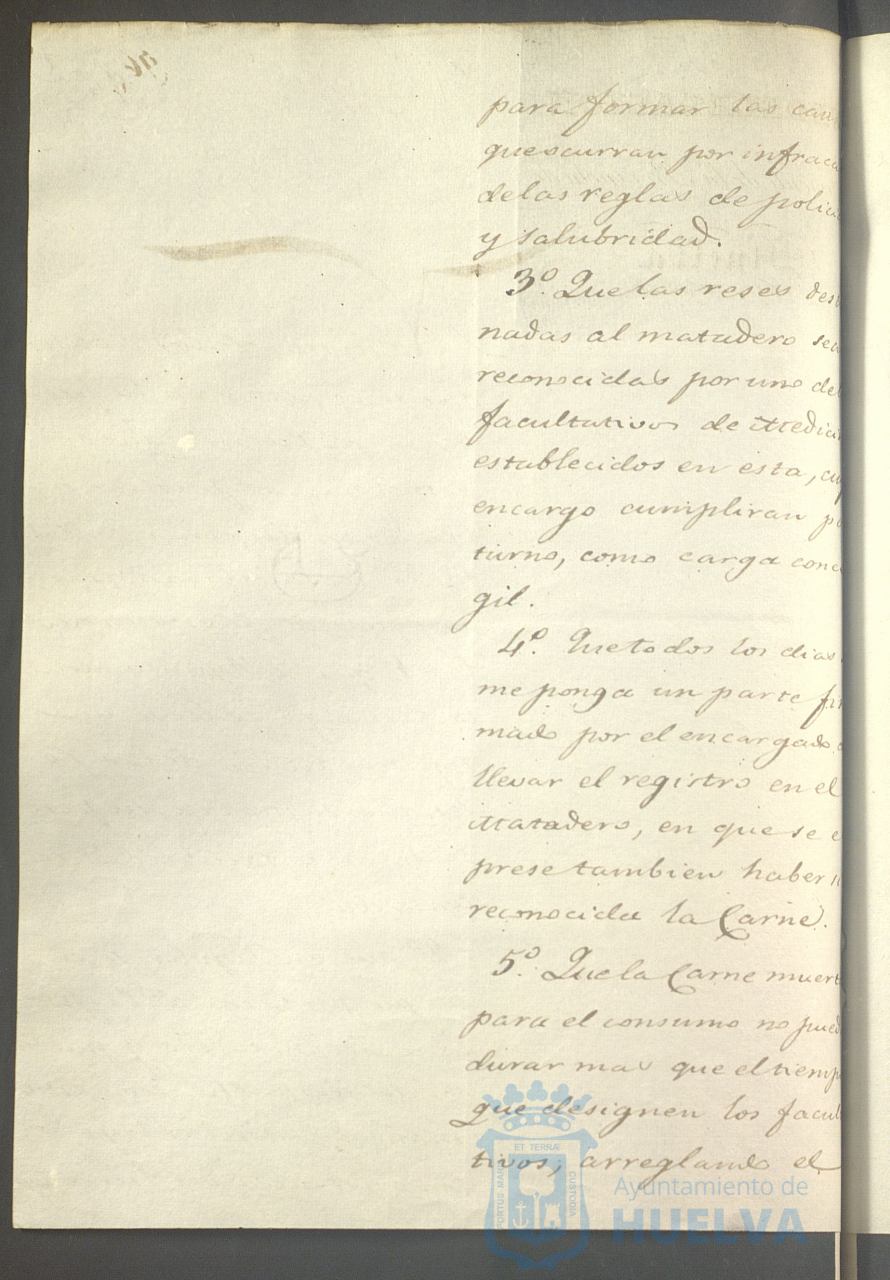 para formar las cau
que ocurran por infracc
de las reglas de polici
y salubridad.
3º. Que las reses des
nadas al matadero sea
reconocidas por uno de
facultativos de Medici
establecidos en esta, cu
encargo cumpliran p
turno, como carga conc
gil.
4º. Que todos los dias
me ponga un parte fir
mado por el encargado
llevar el registro en el
Matadero, en que se e
prese tambien haber
reconocida la Carne.
5º. Que la Carne muert
para el consumo no pued
durar mas que el tiemp
que designen los facul
tivos; arreglando el
ET TERRÆ
PORTUS MARIS
CUSTODIA
Ayuntamiento de
HUELVA